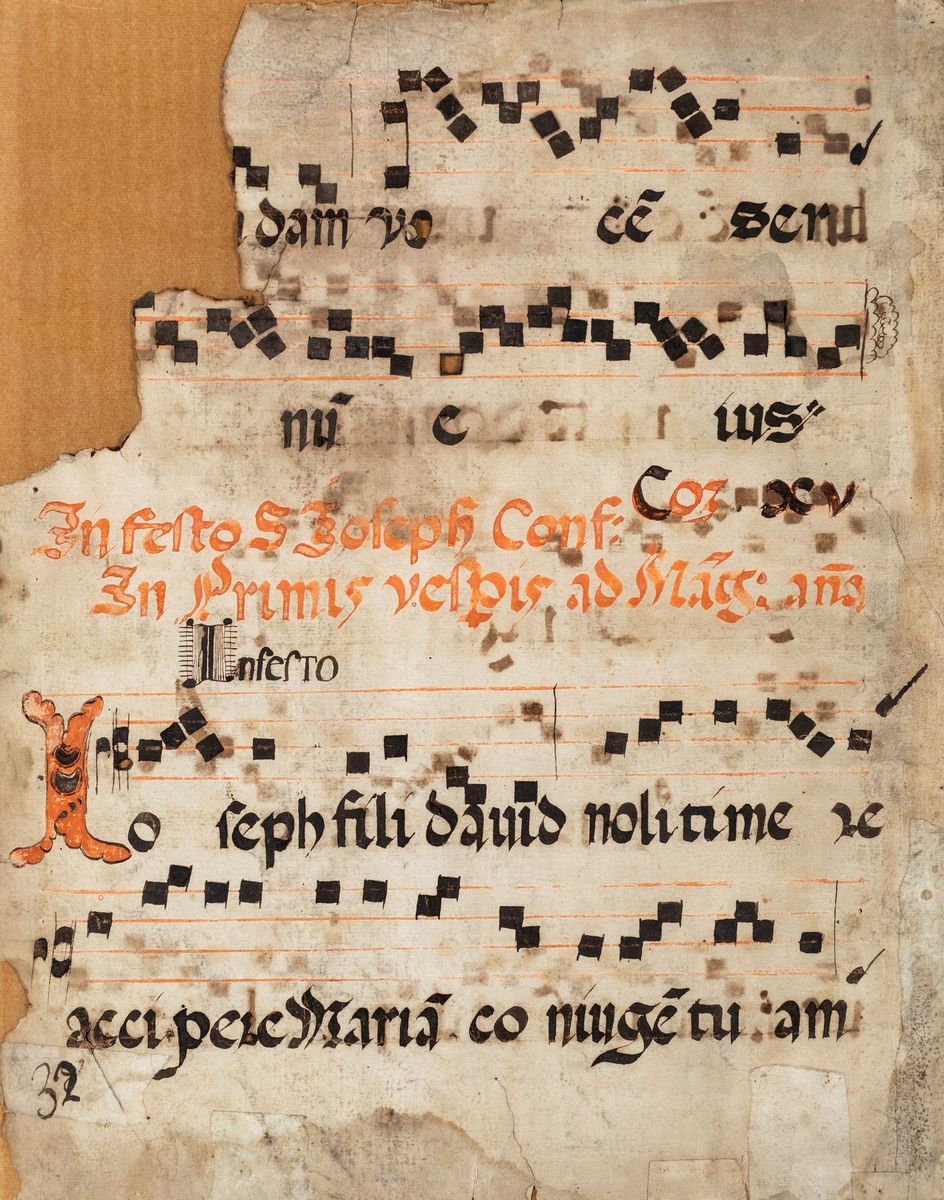 dam vo cẽ ser
nũ e ius
Cor xcv
In festo S Joseph Conf:
In Primis vespis ad Mãg: aña
In festo
Io seph fili david noli time re
accipere Mariã co niugẽ tu am
32